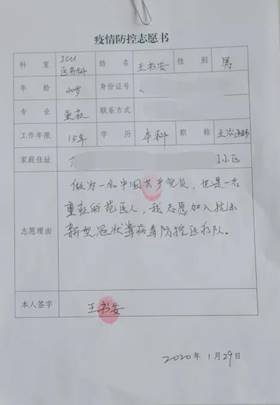 疫情防控志愿书
科室 ICU 医务科 姓名 王书安 性别 男
年龄 身份证号
专业 重症 联系方式
工作年限 15年 学历 本科 职称 主治医师
家庭住址 小区
做为一名中国共产党员,也是一名
重症的范医人,我志愿加入抗击
志愿理由
新型冠状病毒防控医疗队。
本人签字
王书安
2020年1月29日